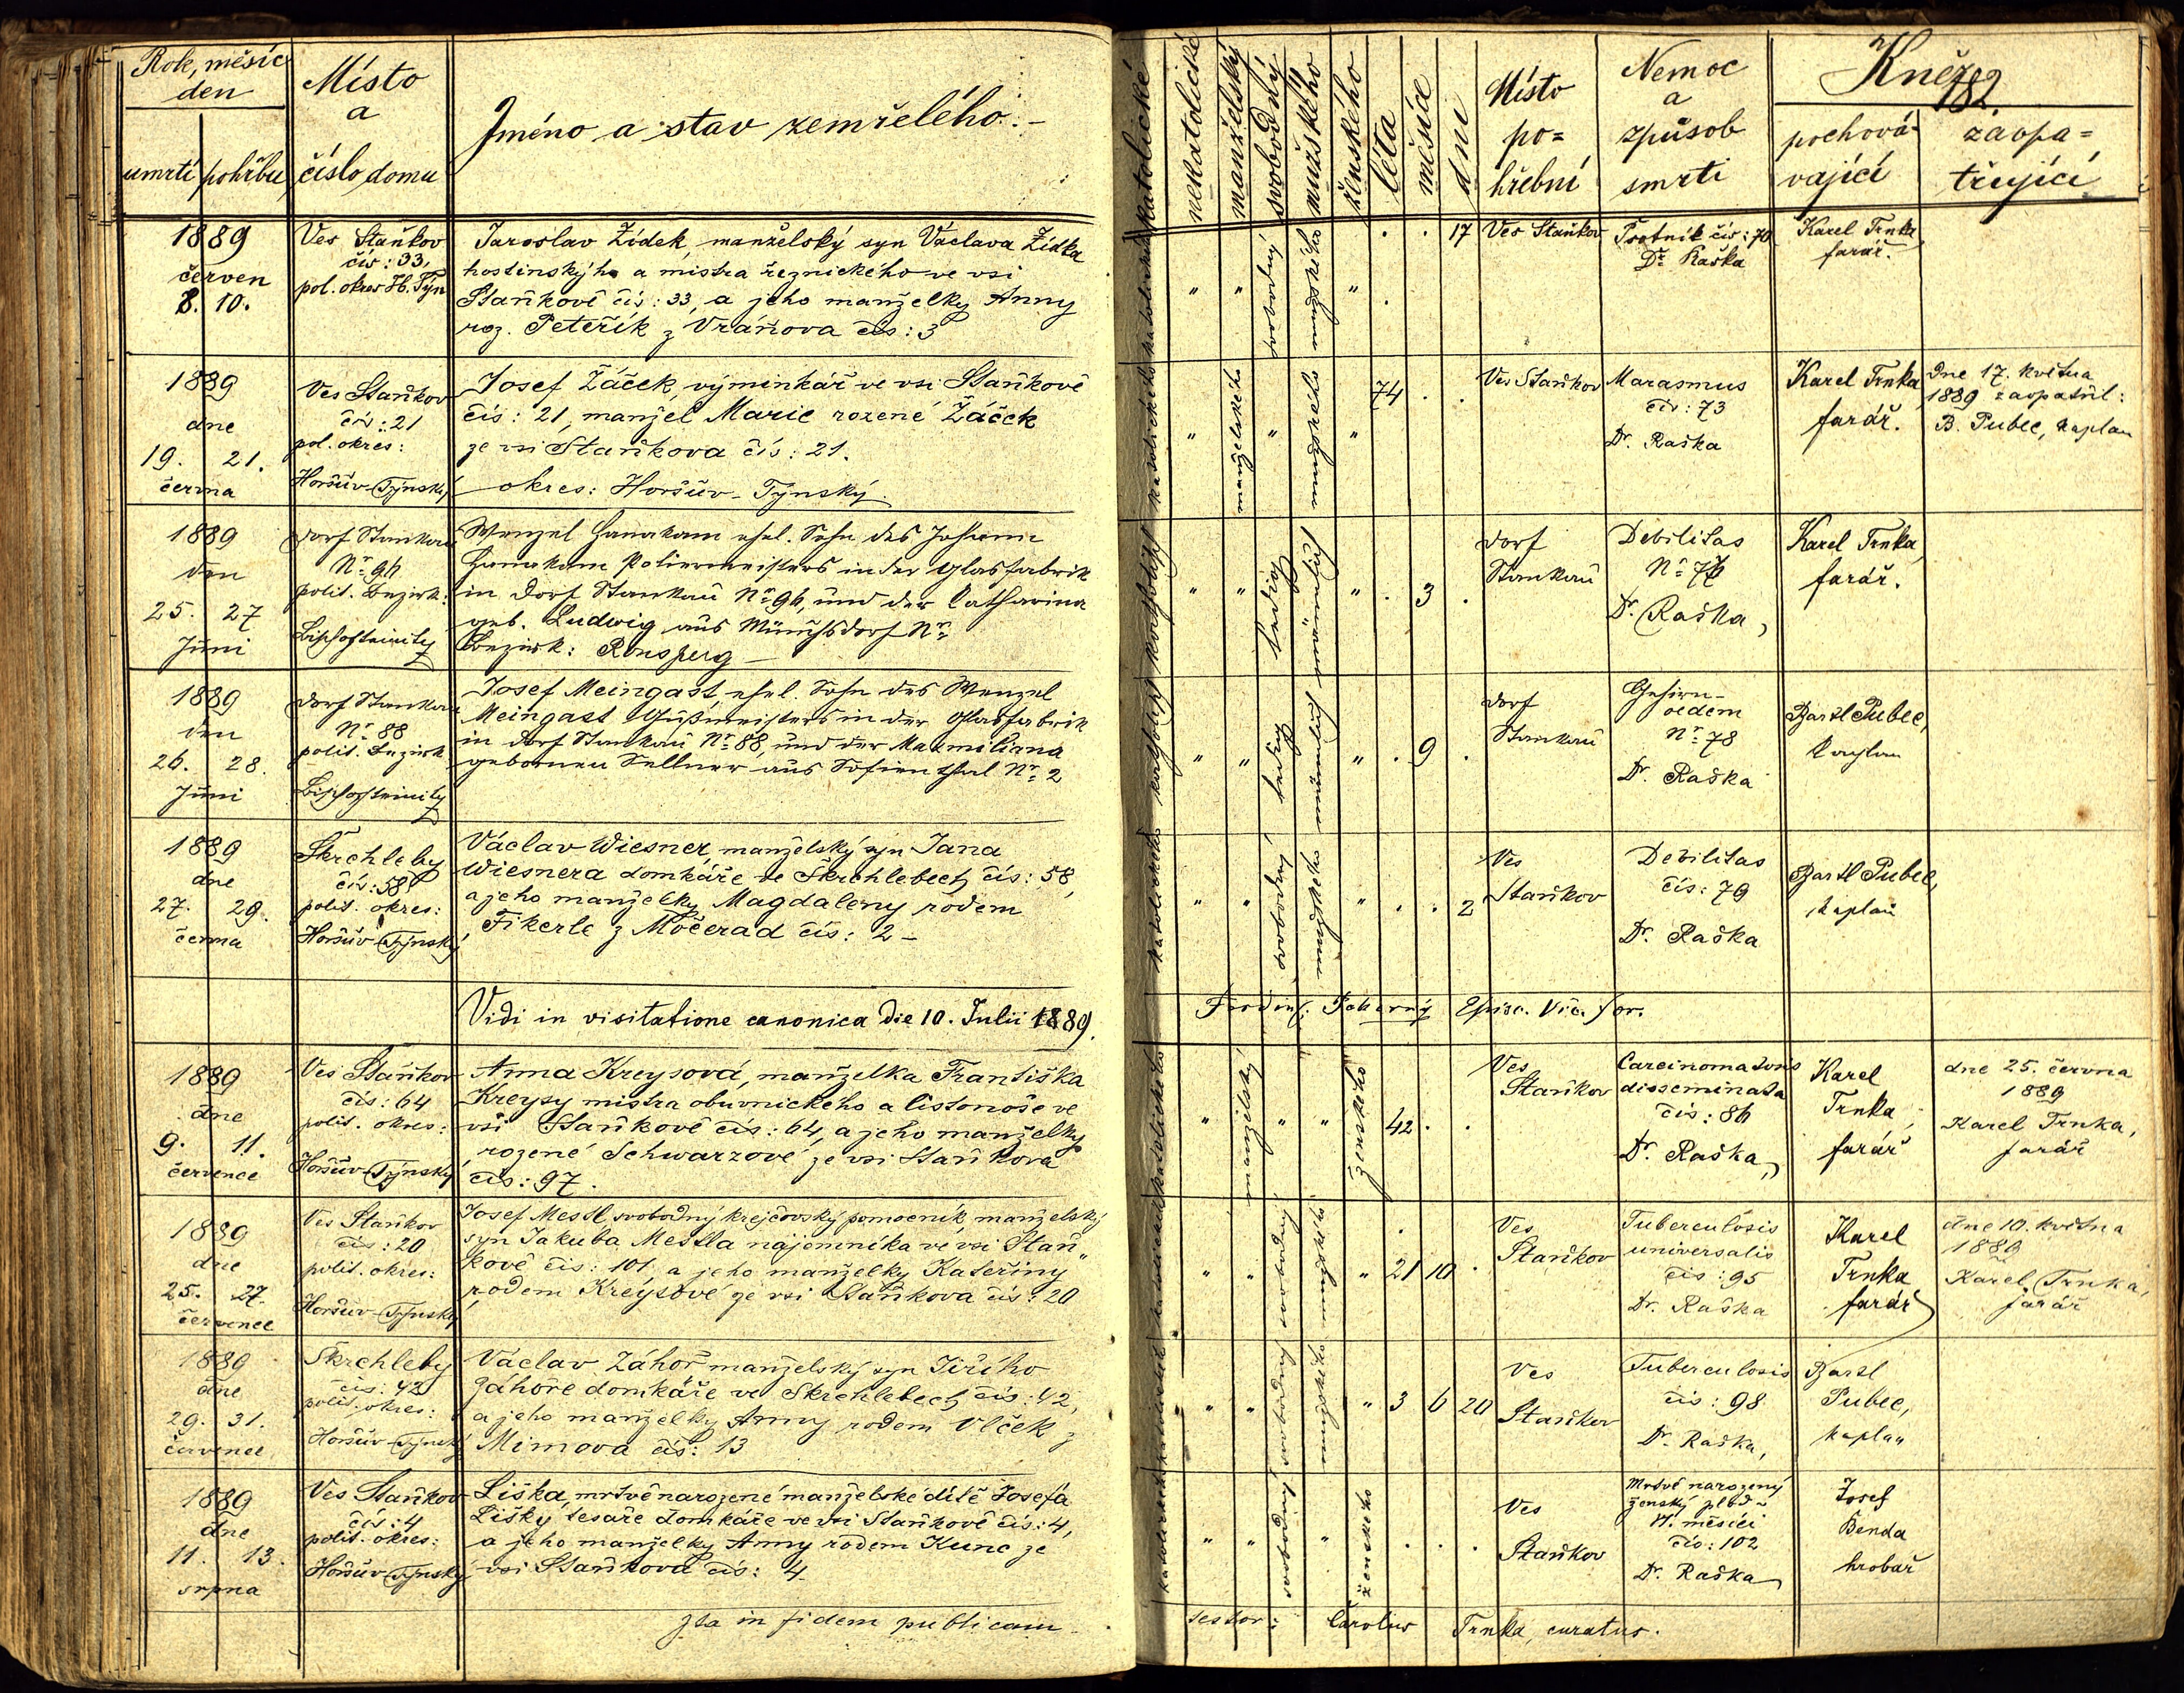 Rok, měsíc
den
umrtí pohřbu
Místo
a
číslo domu
Jméno a stav zemřelého.
katolické
nekatolické
manželský
svobodný
mužského
ženského
léta
měsíce
dni
Místo
po=
hřební
Nemoc
a
způsob
smrti
Kněz
182.
pochová-
vající
zaopa=
třující
1889
červen
8. 10.
Ves Staňkov
čís: 33,
pol. okres H. Týn
Jaroslav Žídek, manželský syn Václava Žídka
hostinského a mistra řeznického ve vsi
Staňkově čís: 33, a jeho manželky Anny
roz. Peteřík z Vráňova čís: 3
katolického
" "
svobodný
mužského
"
. . 17
Ves Staňkov
Psotník čís: 70
Dr. Raška
Karel Trnka
farář.
1889
dne
19. 21.
června
Ves Staňkov
čís: 21
pol. okres:
Horšův-Týnský
Josef Žáček, výminkář ve vsi Staňkově
čís: 21, manžel Marie rozené Žáček
ze vsi Staňkova čís: 21.
okres: Horšův-Týnský.
katolického
"
manželského
"
mužského
"
74 . .
Ves Staňkov
Marasmus
čís: 73
Dr. Raška
Karel Trnka
farář.
Dne 17. května
1889 zaopatřil:
B. Pubec, kaplan
1889
den
25. 27
Juni
Dorf Stankau
Nr. 96
polit. Bezirk:
Bischofteinitz
Wenzel Hanakam ehel. Sohn des Johann
Hanakam Poliermeisters in der Glasfabrik
in Dorf Stankau Nr. 96, und der Catharina
geb. Ludwig aus Münchsdorf Nr.
Bezirk: Ronsperg
katholisch
" "
ledig
männlich
"
. 3 .
Dorf
Stankau
Debilitas
Nr. 76
Dr. Raška,
Karel Trnka,
farář.
1889
den
26. 28.
Juni
Dorf Stankau
Nr. 88
polit. Bezirk
Bischofteinitz
Josef Meingast, ehel. Sohn des Wenzel
Meingast Gußmeisters in der Glasfabrik
in Dorf Stankau Nr. 88, und der Maxmiliana
gebornen Sellner aus Sofienthal Nr. 2
katholisch
" "
ledig
männlich
"
. 9 .
Dorf
Stankau
Gehirn-
oedem
Nr. 78
Dr. Raška
Bartl Pubec,
Kaplan
1889
dne
27. 29.
června
Škrchleby
čís: 58
polit. okres:
Horšův-Týnský
Václav Wiesner, manželský syn Jana
Wiesnera domkáře ve Škrchlebech čís: 58,
a jeho manželky Magdaleny rodem
Fikerle z Močerad čís: 2 -
katolického
" "
svobodný
mužského
"
. . 2
Ves
Staňkov
Debilitas
čís: 79
Dr. Raška
Bartl Pubec,
kaplan
Vidi in visitatione canonica die 10. Julii 1889.
Episc. Vic. for.
1889
dne
9. 11.
července
Ves Staňkov
čís: 64
polit. okres:
Horšův-Týnský
Anna Kreysová, manželka Františka
Kreysy mistra obuvnického a listonoše ve
vsi Staňkově čís: 64, a jeho manželky
rozené Schwarzové ze vsi Staňkova
čís: 97.
katolického
"
manželský
" "
ženského
42 . .
Ves
Staňkov
disseminata
čís: 86
Dr. Raška,
Karel
Trnka,
farář
dne 25. června
1889
Karel Trnka,
farář
1889
dne
25. 27.
červenec
Ves Staňkov
čís: 20
polit. okres:
Horšův-Týnský
Josef Mestl, svobodný krejčovský pomocník, manželský
syn Jakuba Mestla nájemníka ve vsi Staň„
kově čís: 101, a jeho manželky Kateřiny
rodem Kreysové ze vsi Staňkova čís: 20
" "
svobodný
mužského
"
21 10 .
Ves
Staňkov
Tuberculosis
universalis
čís: 95
Dr. Raška
Karel
Trnka
farář
dne 10. května
1889
Karel Trnka,
farář
1889
dne
29. 31.
červenec
Škrchleby
čís: 42
polit. okres:
Horšův-Týnský
Václav Záhoř manželský syn Jiřího
Záhoře domkáře ve Škrchlebech čís: 42,
a jeho manželky Anny rodem Vlček z
Mimova čís: 13
" "
svobodný
mužského
"
3 6 20
Ves
Staňkov
Tuberculosis
čís: 98
Dr. Raška,
Bartl
Pubec,
kaplan
1889
dne
11. 13.
srpna
Ves Staňkov
čís: 4
polit. okres:
Horšův-Týnský
Liška, mrtvě narozené manželské dítě Josefa
Lišky tesaře domkáře ve vsi Staňkově čís: 4,
a jeho manželky Anny rodem Kunc ze
vsi Staňkova čís: 4
" "
svobodný
"
ženského
. . .
Ves
Staňkov
Mrtvě narozený
ženský plod
měsíci
čís: 102
Dr. Raška
Josef
Benda
hrobař
Ita in fidem publicam
testor: Carolus Trnka, curatus.